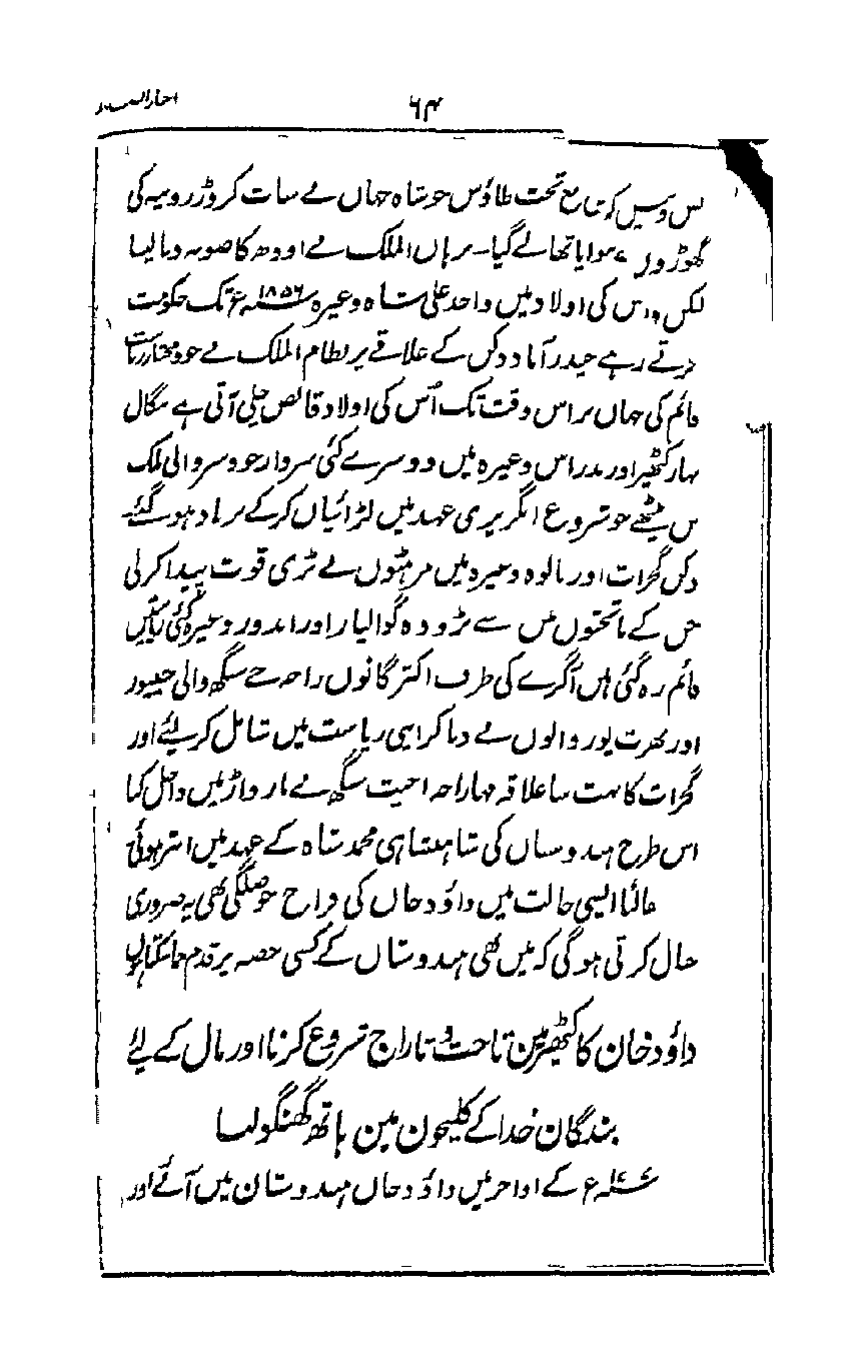 ۶۴
اخبار الصنادید
تخت طاؤس جو شاہ جہاں نے سات کروڑ روپیہ کی
بنوایا تھا لے گیا۔ برہان الملک نے اودھ کا صوبہ دبا لیا
لکن اس کی اولاد میں واجد علی شاہ وغیرہ ۱۸۵۶ء تک حکومت
کرتے رہے حیدر آباد دکن کے علاقے پر نظام الملک نے خود مختار ریاست
قائم کی جہاں پر اس وقت تک اُس کی اولاد قابض چلی آتی ہے بنگال
بہار کٹھیر اور مدراس وغیرہ میں دوسرے کئی سردار خود سر والی ملک
بن بیٹھے جو شروع انگریزی عہد میں لڑائیاں کر کے برباد ہو گئے
دکن گجرات اور مالوہ وغیرہ میں مرہٹوں نے بڑی قوت پیدا کر لی
جن کے ماتحتوں میں سے بڑودہ گوالیار اور اندور وغیرہ کئی ریاستیں
قائم رہ گئی ہیں آگرے کی طرف اکثر گانوں راجہ جے سنگھ والی جیپور
اور بھرت پور والوں نے دبا کر اپنی ریاست میں شامل کر لیے اور
گجرات کا بہت سا علاقہ مہاراجہ اجیت سنگھ نے مارواڑ میں داخل کیا
اس طرح ہندوستان کی شاہنشاہی محمد شاہ کے عہد میں ابتر ہوئی
غالباً ایسی حالت میں داؤد خاں کی فراخ حوصلگی بھی یہ ضروری
خیال کرتی ہوگی کہ میں بھی ہندوستان کے کسی حصہ پر قدم جما سکتا ہوں
داؤد خان کا کٹھیر مین تاخت و تاراج شروع کرنا اور مال کے لئے
بندگان خدا کے کلیجون مین ہاتھ گھنگولنا
کے اواخر میں داؤد خاں ہندوستان میں آئے اور